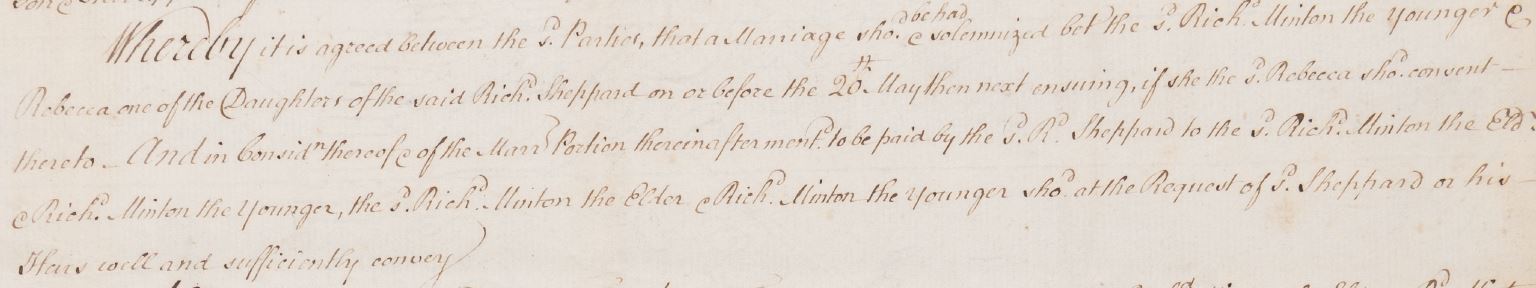 Whereby it is agreed between the sd. Parties, that a Marriage shod. be had & solemnized bet the sd. Richd. Minton the younger &
Rebecca one of the Daughters of the said Richd. Sheppard on or before the 20th. May then next ensuing, if she the sd. Rebecca shod. consent –
thereto – And in Considn thereof & of the Marr Portion thereinafter mentd. to be paid by the sd. Rd. Sheppard to the sd. Richd. Minton the Eldr
& Richd. Minton the Younger, the sd. Richd. Minton the Elder & Richd. Minton the younger shod. at the Request of sd. Sheppard or his –
Heirs well and sufficiently convey